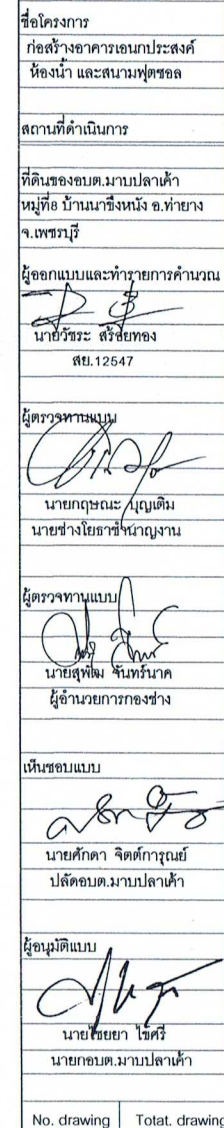 ชื่อโครงการ
ก่อสร้างอาคารเอนกประสงค์
ห้องน้ำ และสนามฟุตซอล
สถานที่ดำเนินการ
ที่ดินของอบต.มาบปลาเค้า
หมู่ที่8 บ้านนาขึ้งหนัง อ.ท่ายาง
จ.เพชรบุรี
ผู้ออกแบบและทำรายการคำนวณ
นายวัชระ สร้อยทอง
สย.12547
ผู้ตรวจทานแบบ
นายกฤษณะ บุญเติม
นายช่างโยธาชำนาญงาน
ผู้ตรวจทานแบบ
นายสุพัฒ จันทร์นาค
ผู้อำนวยการกองช่าง
เห็นชอบแบบ
นายศักดา จิตต์การุณย์
ปลัดอบต.มาบปลาเค้า
ผู้อนุมัติแบบ
นายไชยยา ไข้ศรี
นายกอบต.มาบปลาเค้า
No. drawing Totat. drawing